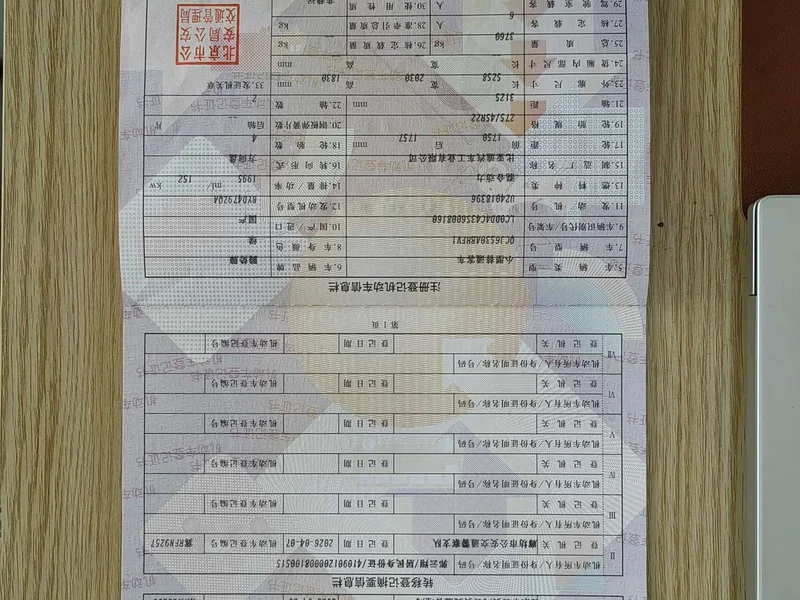 转移登记摘要信息栏
II 机动车所有人/身份证明名称/号码 郭云翔/居民身份证/410901200008100515
登记机关 廊坊市公安交通警察支队 登记日期 2026-04-07 机动车登记编号 冀RFN9257
III 机动车所有人/身份证明名称/号码
登记机关 登记日期 机动车登记编号
IV 机动车所有人/身份证明名称/号码
登记机关 登记日期 机动车登记编号
V 机动车所有人/身份证明名称/号码
登记机关 登记日期 机动车登记编号
VI 机动车所有人/身份证明名称/号码
登记机关 登记日期 机动车登记编号
VII 机动车所有人/身份证明名称/号码
登记机关 登记日期 机动车登记编号
第1页
注册登记机动车信息栏
5.车辆类型 小型普通客车 6.车辆品牌
7.车辆型号 8.车身颜色 绿
9.车辆识别代号/车架号 10.国产/进口 国产
11.发动机号 UZ4018396 12.发动机型号
13.燃料种类 混合动力 14.排量/功率 1995 ml/ 152 kw
15.制造厂名称 比亚迪汽车工业有限公司 16.转向形式 方向盘
17.轮距 前 1750 后 1757 mm 18.轮胎数 4
19.轮胎规格 275/45R22 20.钢板弹簧片数 后轴 片
21.轴距 3125 mm 22.轴数 2
23.外廓尺寸 长 5258 宽 2030 高 1830 mm 33.发证机关章
24.货厢内部尺寸 长 宽 高 mm
25.总质量 3760 kg 26.核定载质量 kg
27.核定载客 6 人 28.准牵引总质量 kg
人 30.使用性质
北京市公安局公安交通管理局